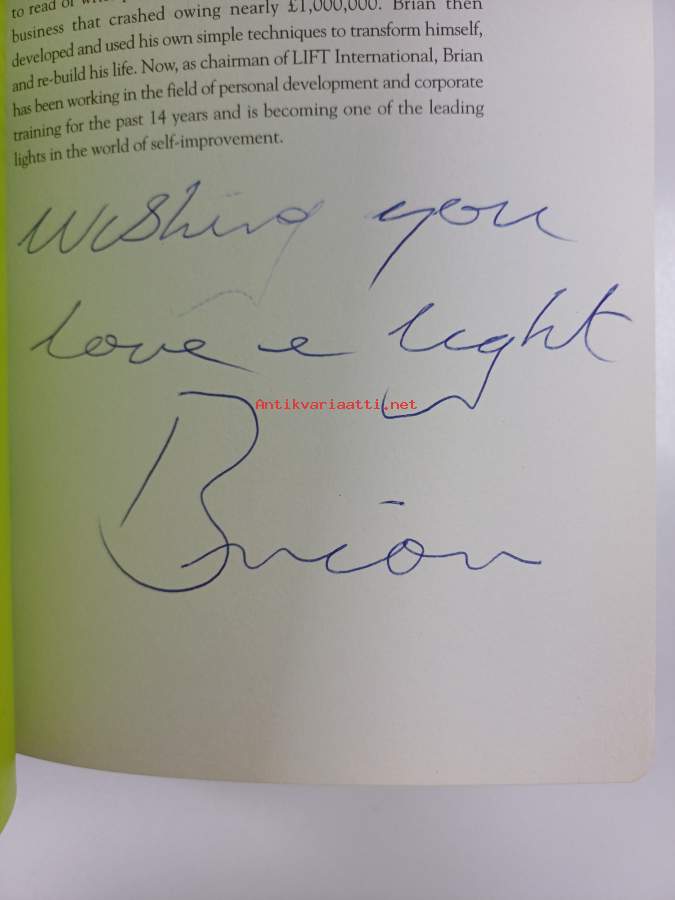 to read of
business that crashed owing nearly £1,000,000. Brian then
developed and used his own simple techniques to transform himself,
and re-build his life. Now, as chairman of LIFT International, Brian
has been working in the field of personal development and corporate
training for the past 14 years and is becoming one of the leading
lights in the world of self-improvement.
Wishing you
love e light
Antikvariaatti.net
Brian